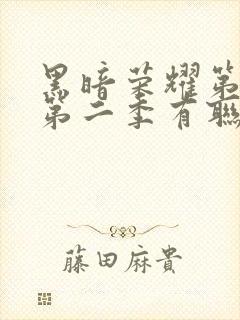 黑暗荣耀第
第二季有聯
藤田麻貴